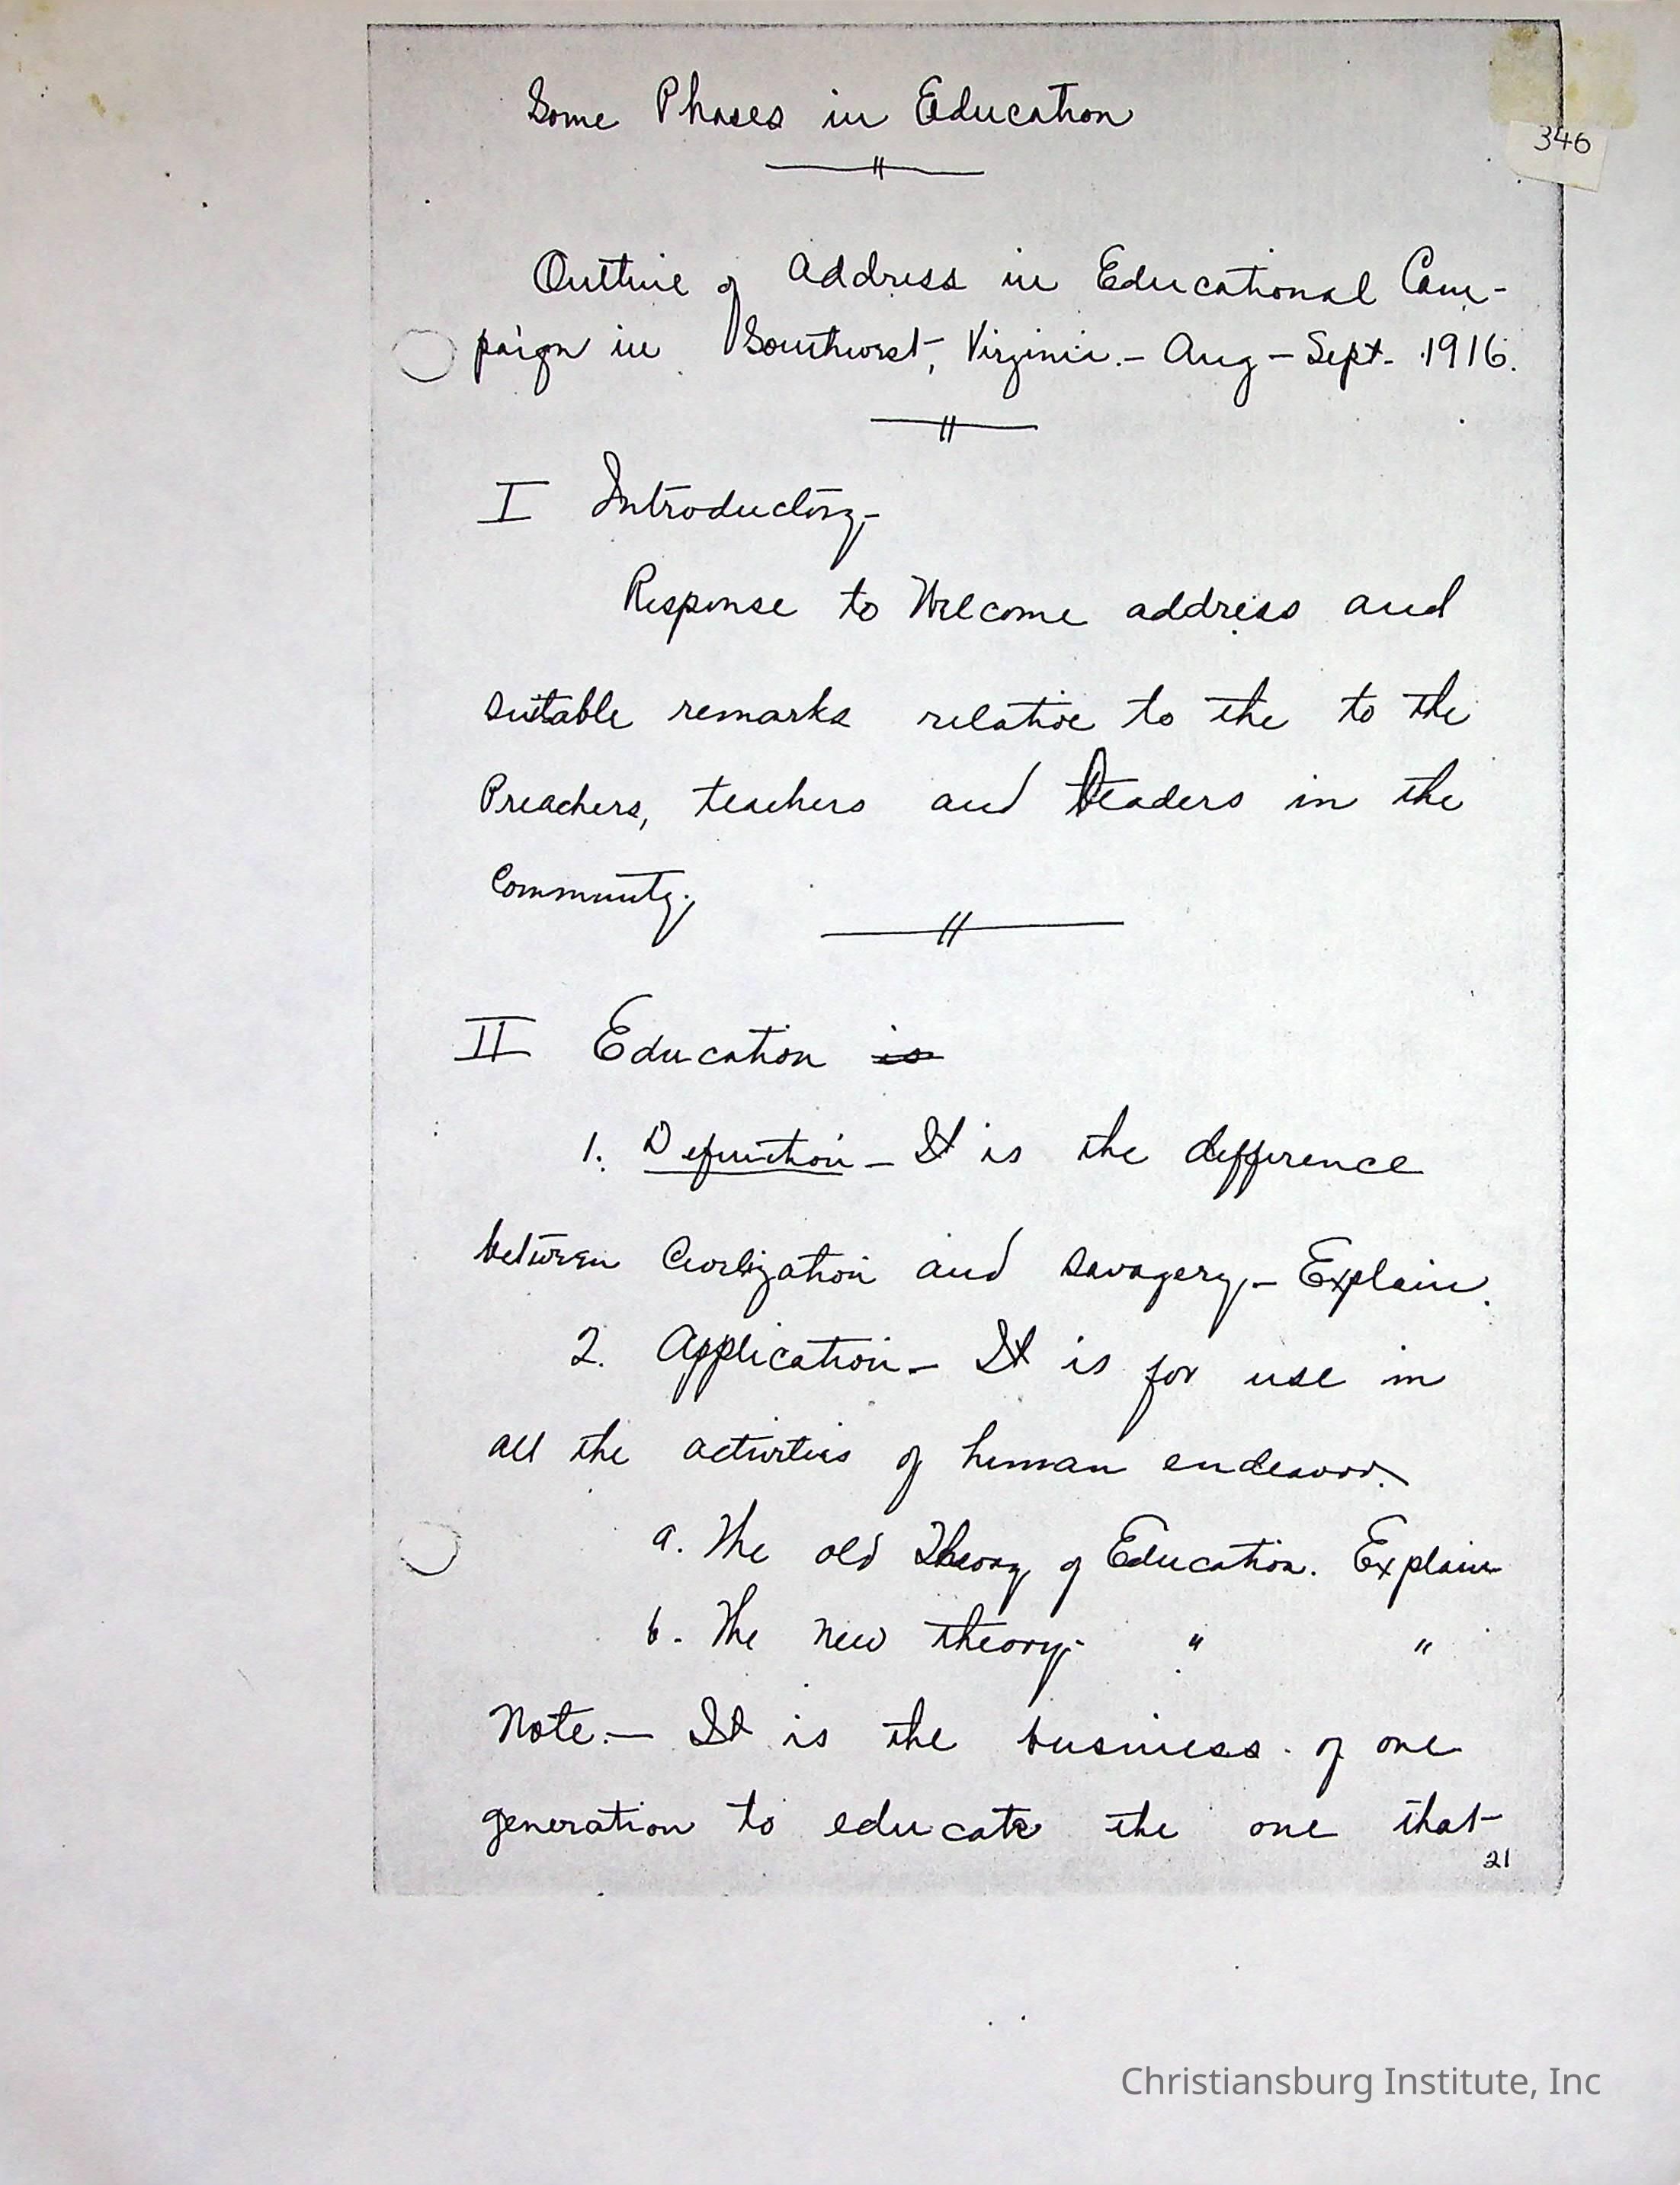 Some Phases in Education
346
Outline of Address in Educational Cam-
paign in Southwest, Virginia. - Aug - Sept. 1916.
I Introductory-
Response to Welcome address and
suitable remarks relative to the to the
Preachers, teachers and leaders in the
Community.
II Education is
1. Definition - It is the difference
between Civilization and savagery, - Explain.
2. Application - It is for use in
all the activities of human endeavor.
a. The old Theory of Education. Explain
b. The new theory- " "
Note. - It is the business of one
generation to educate the one that
21
Christiansburg Institute, Inc